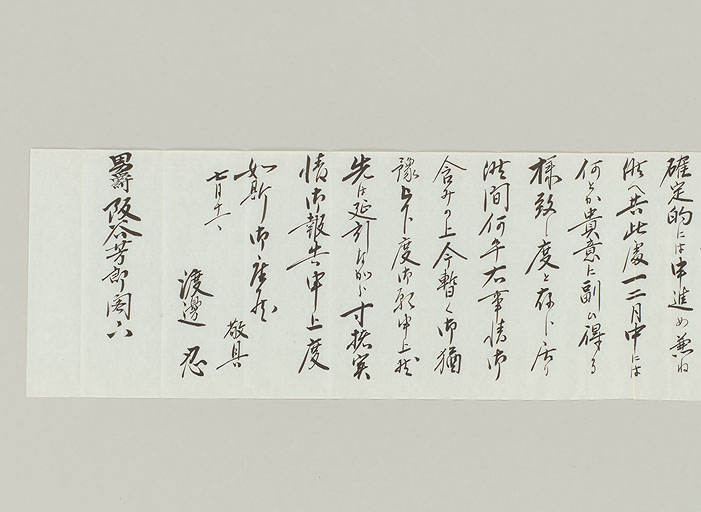 確定的には申進め兼ね
候へ共此處一二月中には
何とか貴意に副ひ得る
様致し度と存じ居り
候間何卒右事情御
含みの上今暫く御猶
豫被下度御願申上候
先は延引ながら寸楮実
情御報告申上度
如斯御座候
敬具
七月十一
渡邊忍
男爵阪谷芳郎閣下